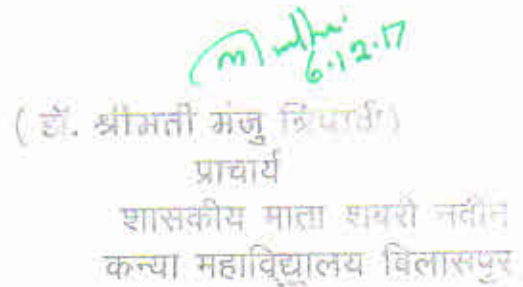 6.12.17
( डॉ. श्रीमती मंजु त्रिपाठी)
प्राचार्य
शासकीय माता शबरी नवीन
कन्या महाविद्यालय विलासपुर